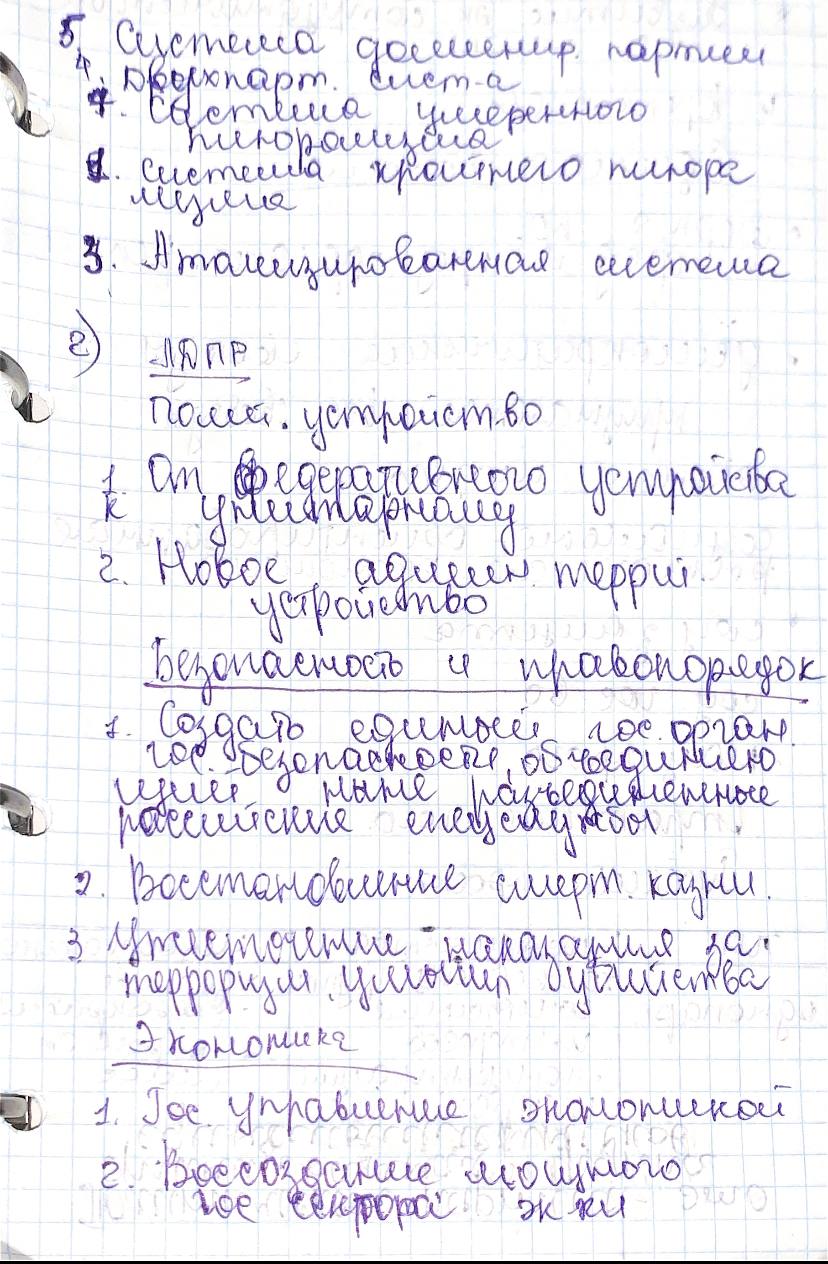 5. Система доминир. партии
4. Двухпарт. сист-а
7. Система умеренного
плюролизма
1. Система крайнего плюра
лизма
3. Атомизированная система
2) ЛДПР
Полит. устройство
1. От федеративного устройства
к унитарному
2. Новое админ. террит.
устройство
Безопасность и правопорядок
1. Создать единый гос. орган.
гос. безопасности, объединяю
щий ныне разъединенные
российские спецслужбы
2. Восстановление смерт. казни.
3 Ужесточение наказания за
терроризм, умышл убийства
Экономика
1. Гос. управление экономикой
2. Воссоздание мощного
гос сектора эк ки